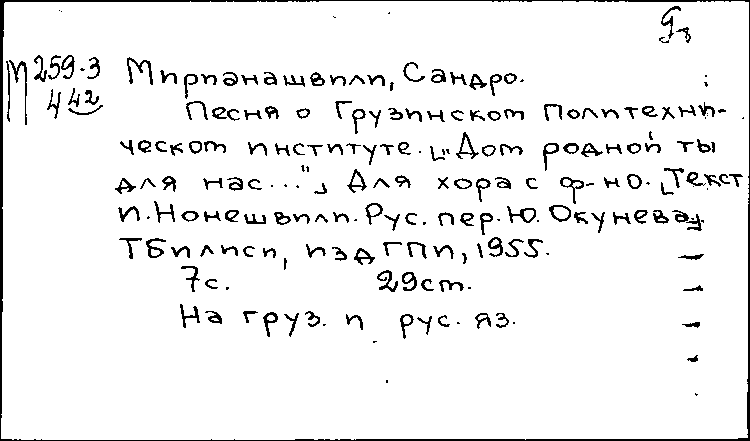 М 259-3
442
Мирианашвили, Сандро.
Песня о Грузинском Политехни-
ческом институте. ["Дом родной ты
для нас..."] Для хора с ф-но. [Текст
И. Нонешвили. Рус. пер. Ю. Окунева].
Тбилиси, изд ГПИ, 1955.
7с. 29см.
На груз. и рус. яз.